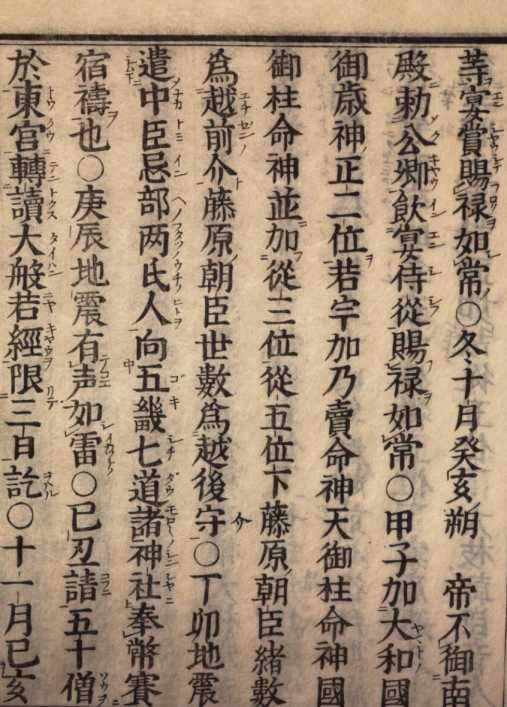 等宴賞賜禄如常〇冬十月癸亥朔　帝不御南
殿勅公卿飲宴侍從賜禄如常〇甲子加大和國
御歳神正二位若宇加乃賣命神天御柱命神國
御柱命神並加從三位從五位下藤原朝臣緒數
爲越前介藤原朝臣世數爲越後守〇丁卯地震
遣中臣忌部两氏人向五畿七道諸神社奉幣賽
宿禱也〇庚辰地震有声如雷〇己丑請五十僧
於東宮轉讀大般若經限三日訖〇十一月己亥